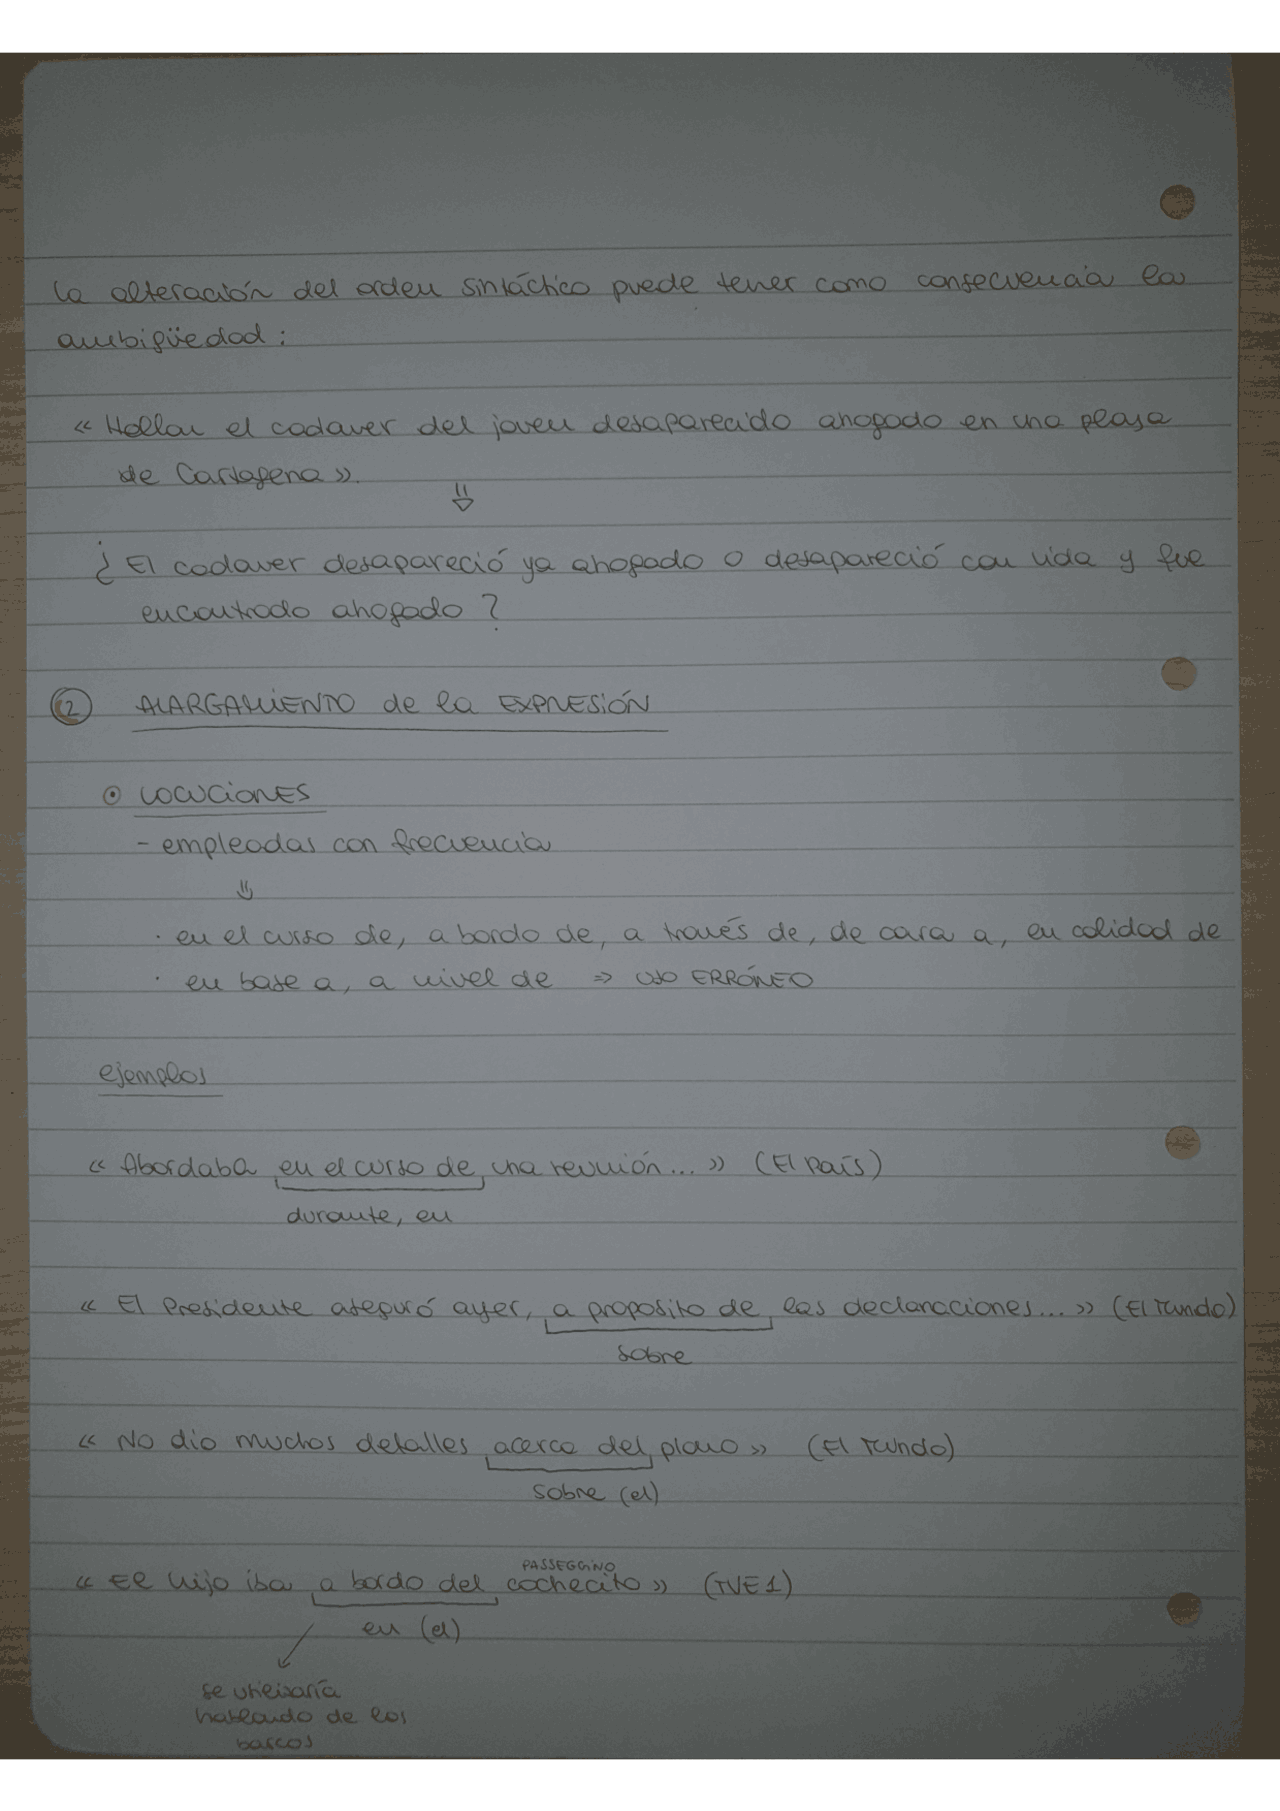 La alteración del orden sintáctico puede tener como consecuencia la
ambigüedad:
« Hallan el cadaver del joven desaparecido ahogado en una playa
de Cartagena ».
⇓
¿ El cadaver desapareció ya ahogado o desapareció con vida y fue
encontrado ahogado ?
② ALARGAMIENTO de la EXPRESIÓN
⊙ LOCUCIONES
- empleadas con frecuencia
⇓
· en el curso de, a bordo de, a través de, de cara a, en calidad de
· en base a, a nivel de ⇒ USO ERRÓNEO
ejemplos
« Abordaba en el curso de una reunión... » (El País)
durante, en
« El Presidente aseguró ayer, a proposito de las declaracciones... » (El Mundo)
sobre
« No dio muchos detalles acerca del plano » (El Mundo)
sobre (el)
PASSEGGINO
« El hijo iba a bordo del cochecito » (TVE1)
en (el)
se utilizaría
hablando de los
barcos